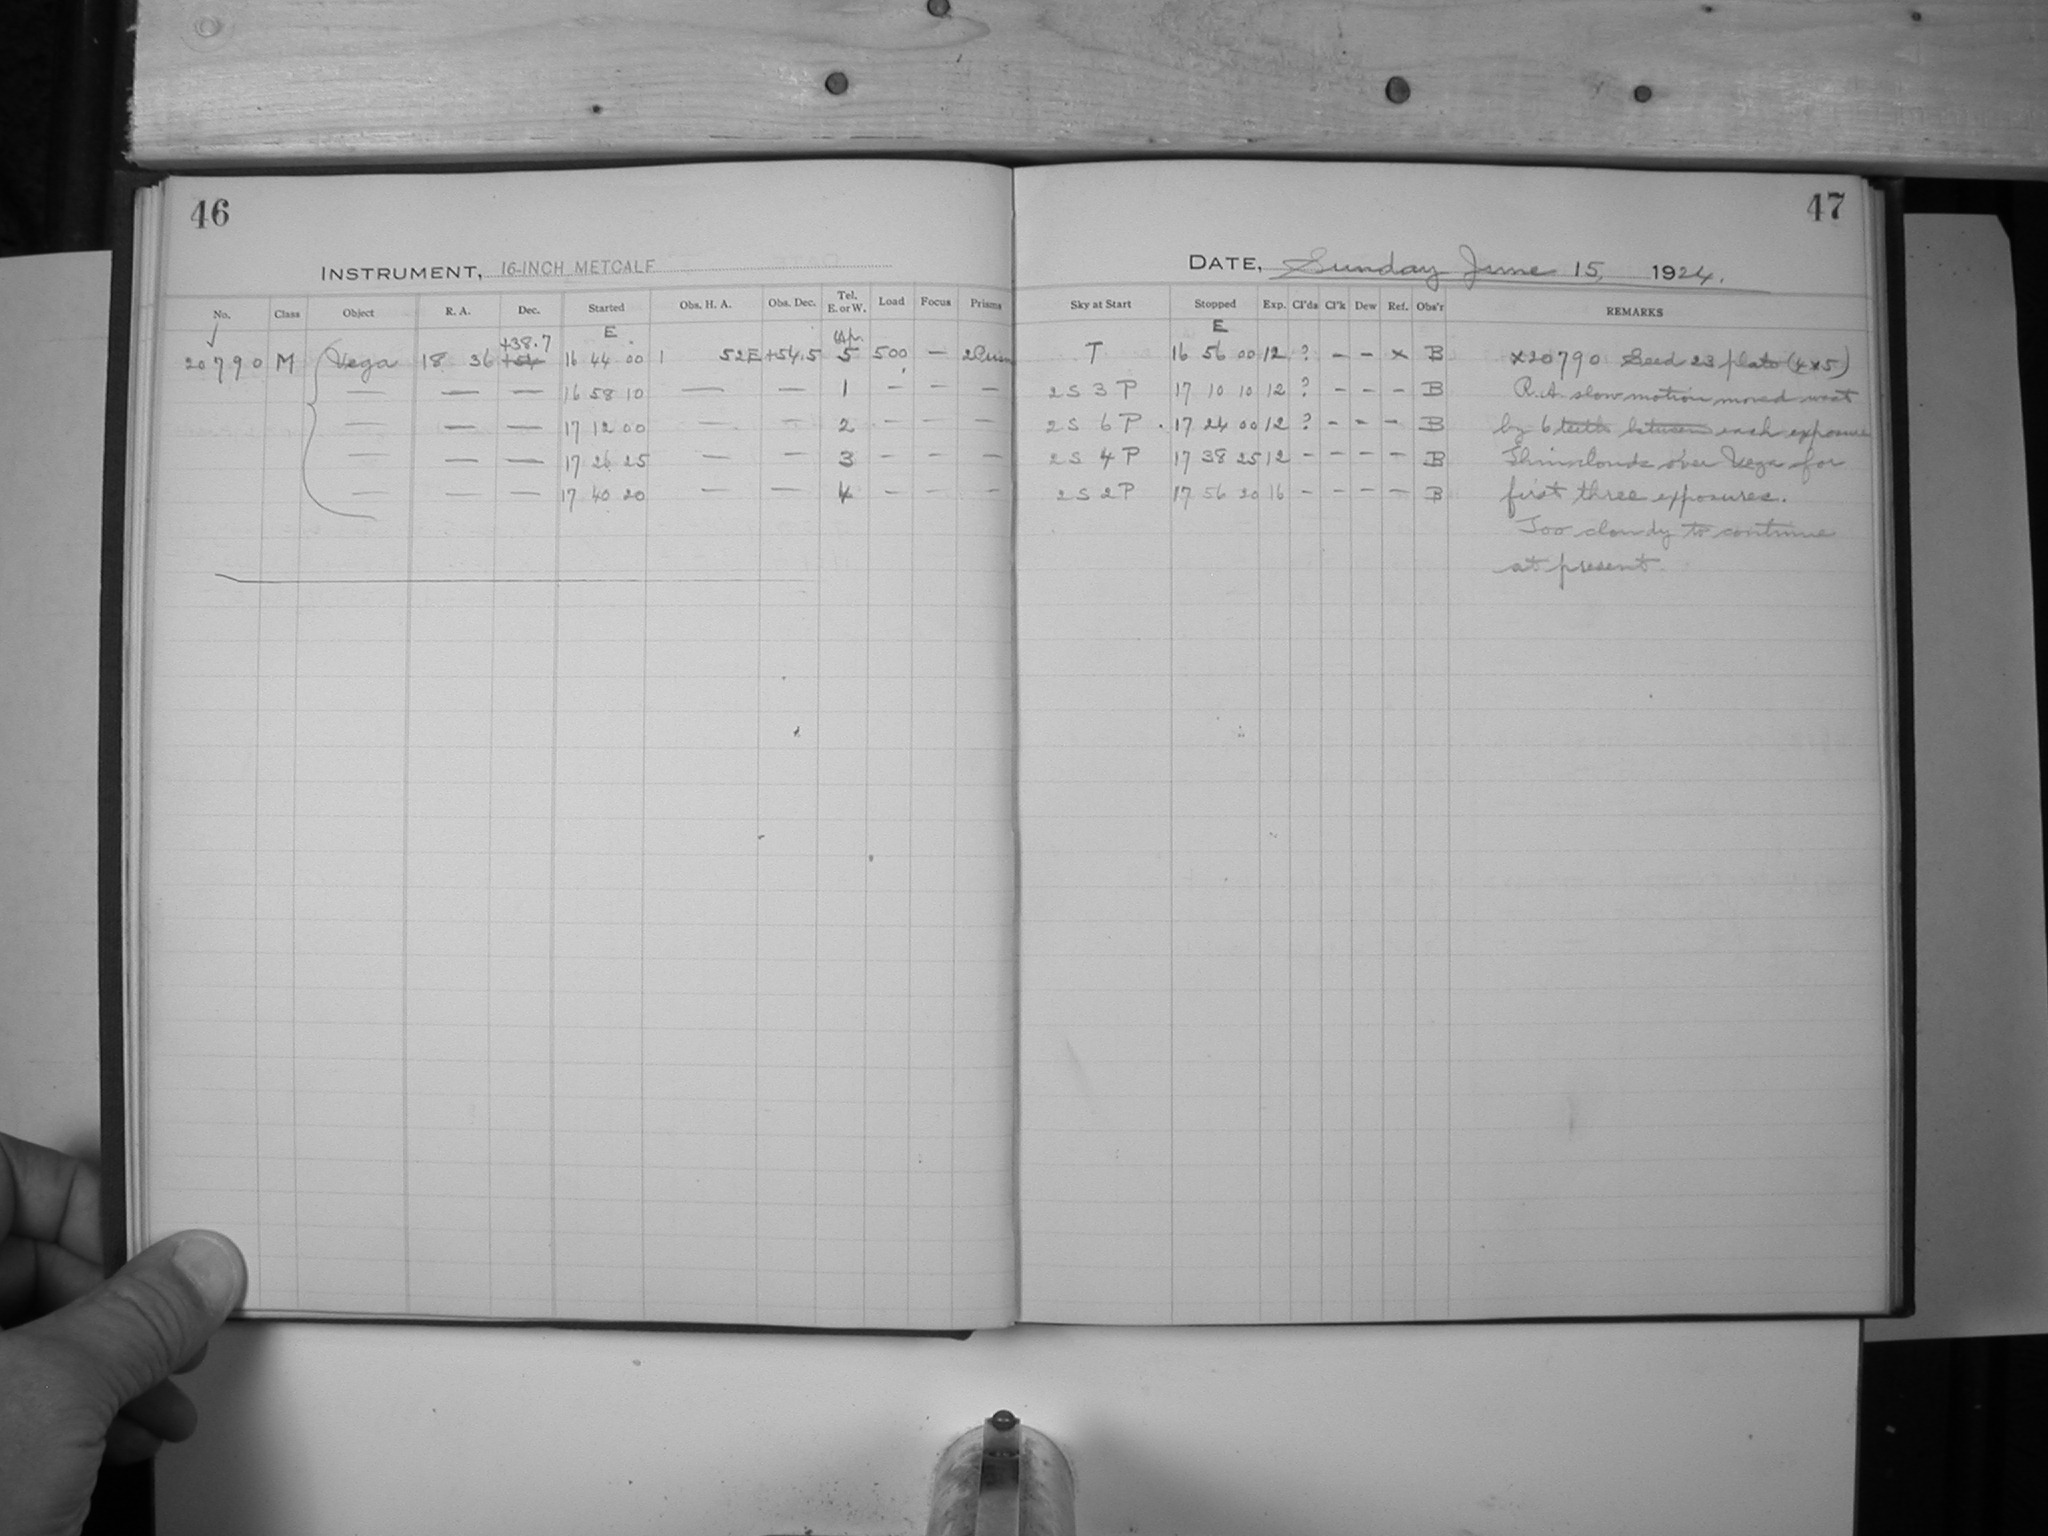 46
47
INSTRUMENT, 16-INCH METCALF
DATE, Sunday June 15, 1924.
No. Class Object R. A. Dec. Started Obs. H. A. Obs. Dec. Tel. E. or W. Load Focus Prisms Sky at Start Stopped Exp. Cl'ds Cl'k Dew Ref. Obs'r REMARKS
E Ap. E
+38.7
20790 M Vega 18 36 +54 16 44 00 1 52E +54.5 5 500 — 2 Prism T 16 56 00 12 ? – – x B x20790 Seed 23 plate (4x5)
— — — 16 58 10 — — 1 – – – 2 S 3 P 17 10 10 12 ? – – – B R.A. slow motion moved west
— — — 17 12 00 — — 2 – – – 2 S 6 P 17 24 00 12 ? – – – B by 6 teeth between each exposure
— — — 17 26 25 — — 3 – – – 2 S 4 P 17 38 25 12 – – – – B Thin clouds over Vega for
— — — 17 40 20 — — 4 – – – 2 S 2 P 17 56 20 16 – – – – B first three exposures.
Too cloudy to continue
at present.